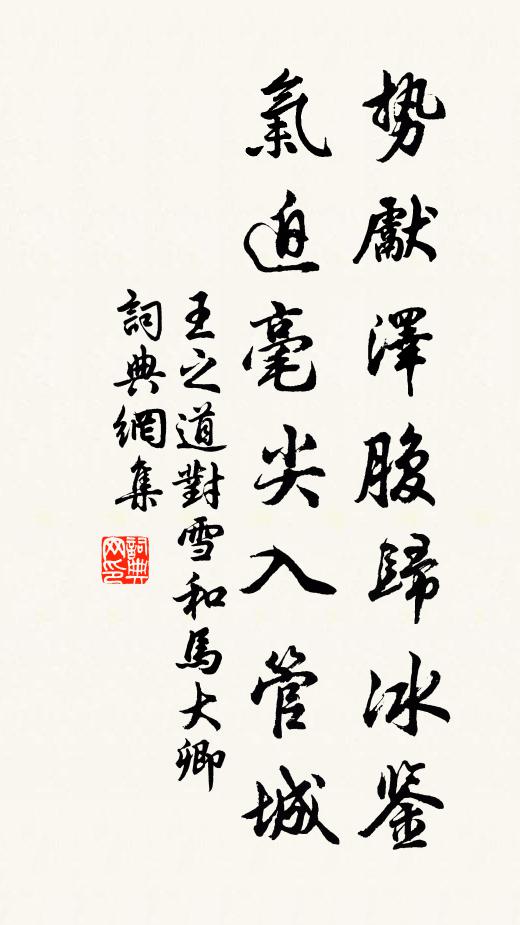 勢獻澤腹歸冰鉴
氣迫毫尖入管城
王之道對雪和馬大卿
詞典網集
詞典网印